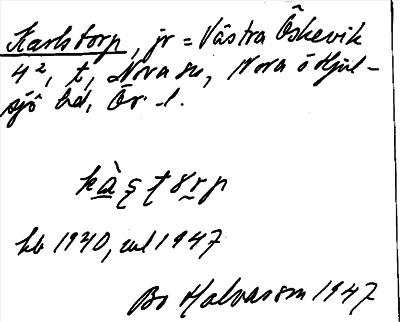 Karlstorp, jr = Västra Öskevik
4², t, Nora sn, Nora o Hjul-
sjö hd, Ör. l.
kà̱ʂʈɤrp
hb 1940, ul 1947
Bo Halvarson 1947